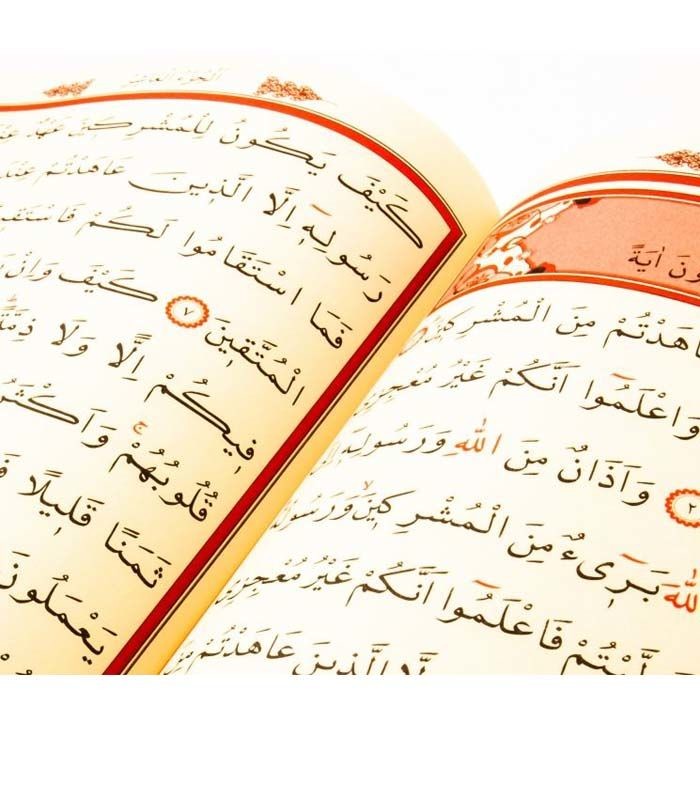 اٰيَةً
مِنَ الْمُشْرِكِينَ
وَاعْلَمُوا اَنَّكُمْ غَيْرُ مُعْجِزِي
٢ وَاَذَانٌ مِنَ اللّٰهِ وَرَسُولِهِ
اللّٰهَ بَرِيءٌ مِنَ الْمُشْرِكِينَ وَرَسُولُهُ
فَاعْلَمُوا اَنَّكُمْ غَيْرُ مُعْجِزِي
الَّذِينَ عَاهَدْتُمْ مِنَ
اَلْجُزْءُ الْعَاشِرُ
كَيْفَ يَكُونُ لِلْمُشْرِكِينَ عَهْدٌ
رَسُولِهٓ اِلَّا الَّذِينَ عَاهَدْتُمْ عِنْدَ
فَمَا اسْتَقَامُوا لَكُمْ
الْمُتَّقِينَ ٧ كَيْفَ وَاِنْ
فِيكُمْ اِلًّا وَلَا ذِمَّةً
قُلُوبُهُمْۚ
ثَمَنًا قَلِيلًا
يَعْمَلُونَ